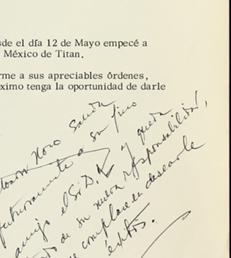 sde el día 12 de Mayo empecé a
México de Titan.
rme a sus apreciables órdenes,
ximo tenga la oportunidad de darle
saluda
a su fino
amigo el Sr. D. N. y queda
de su nueva responsabilidad,
se complace en desearle
éxitos.